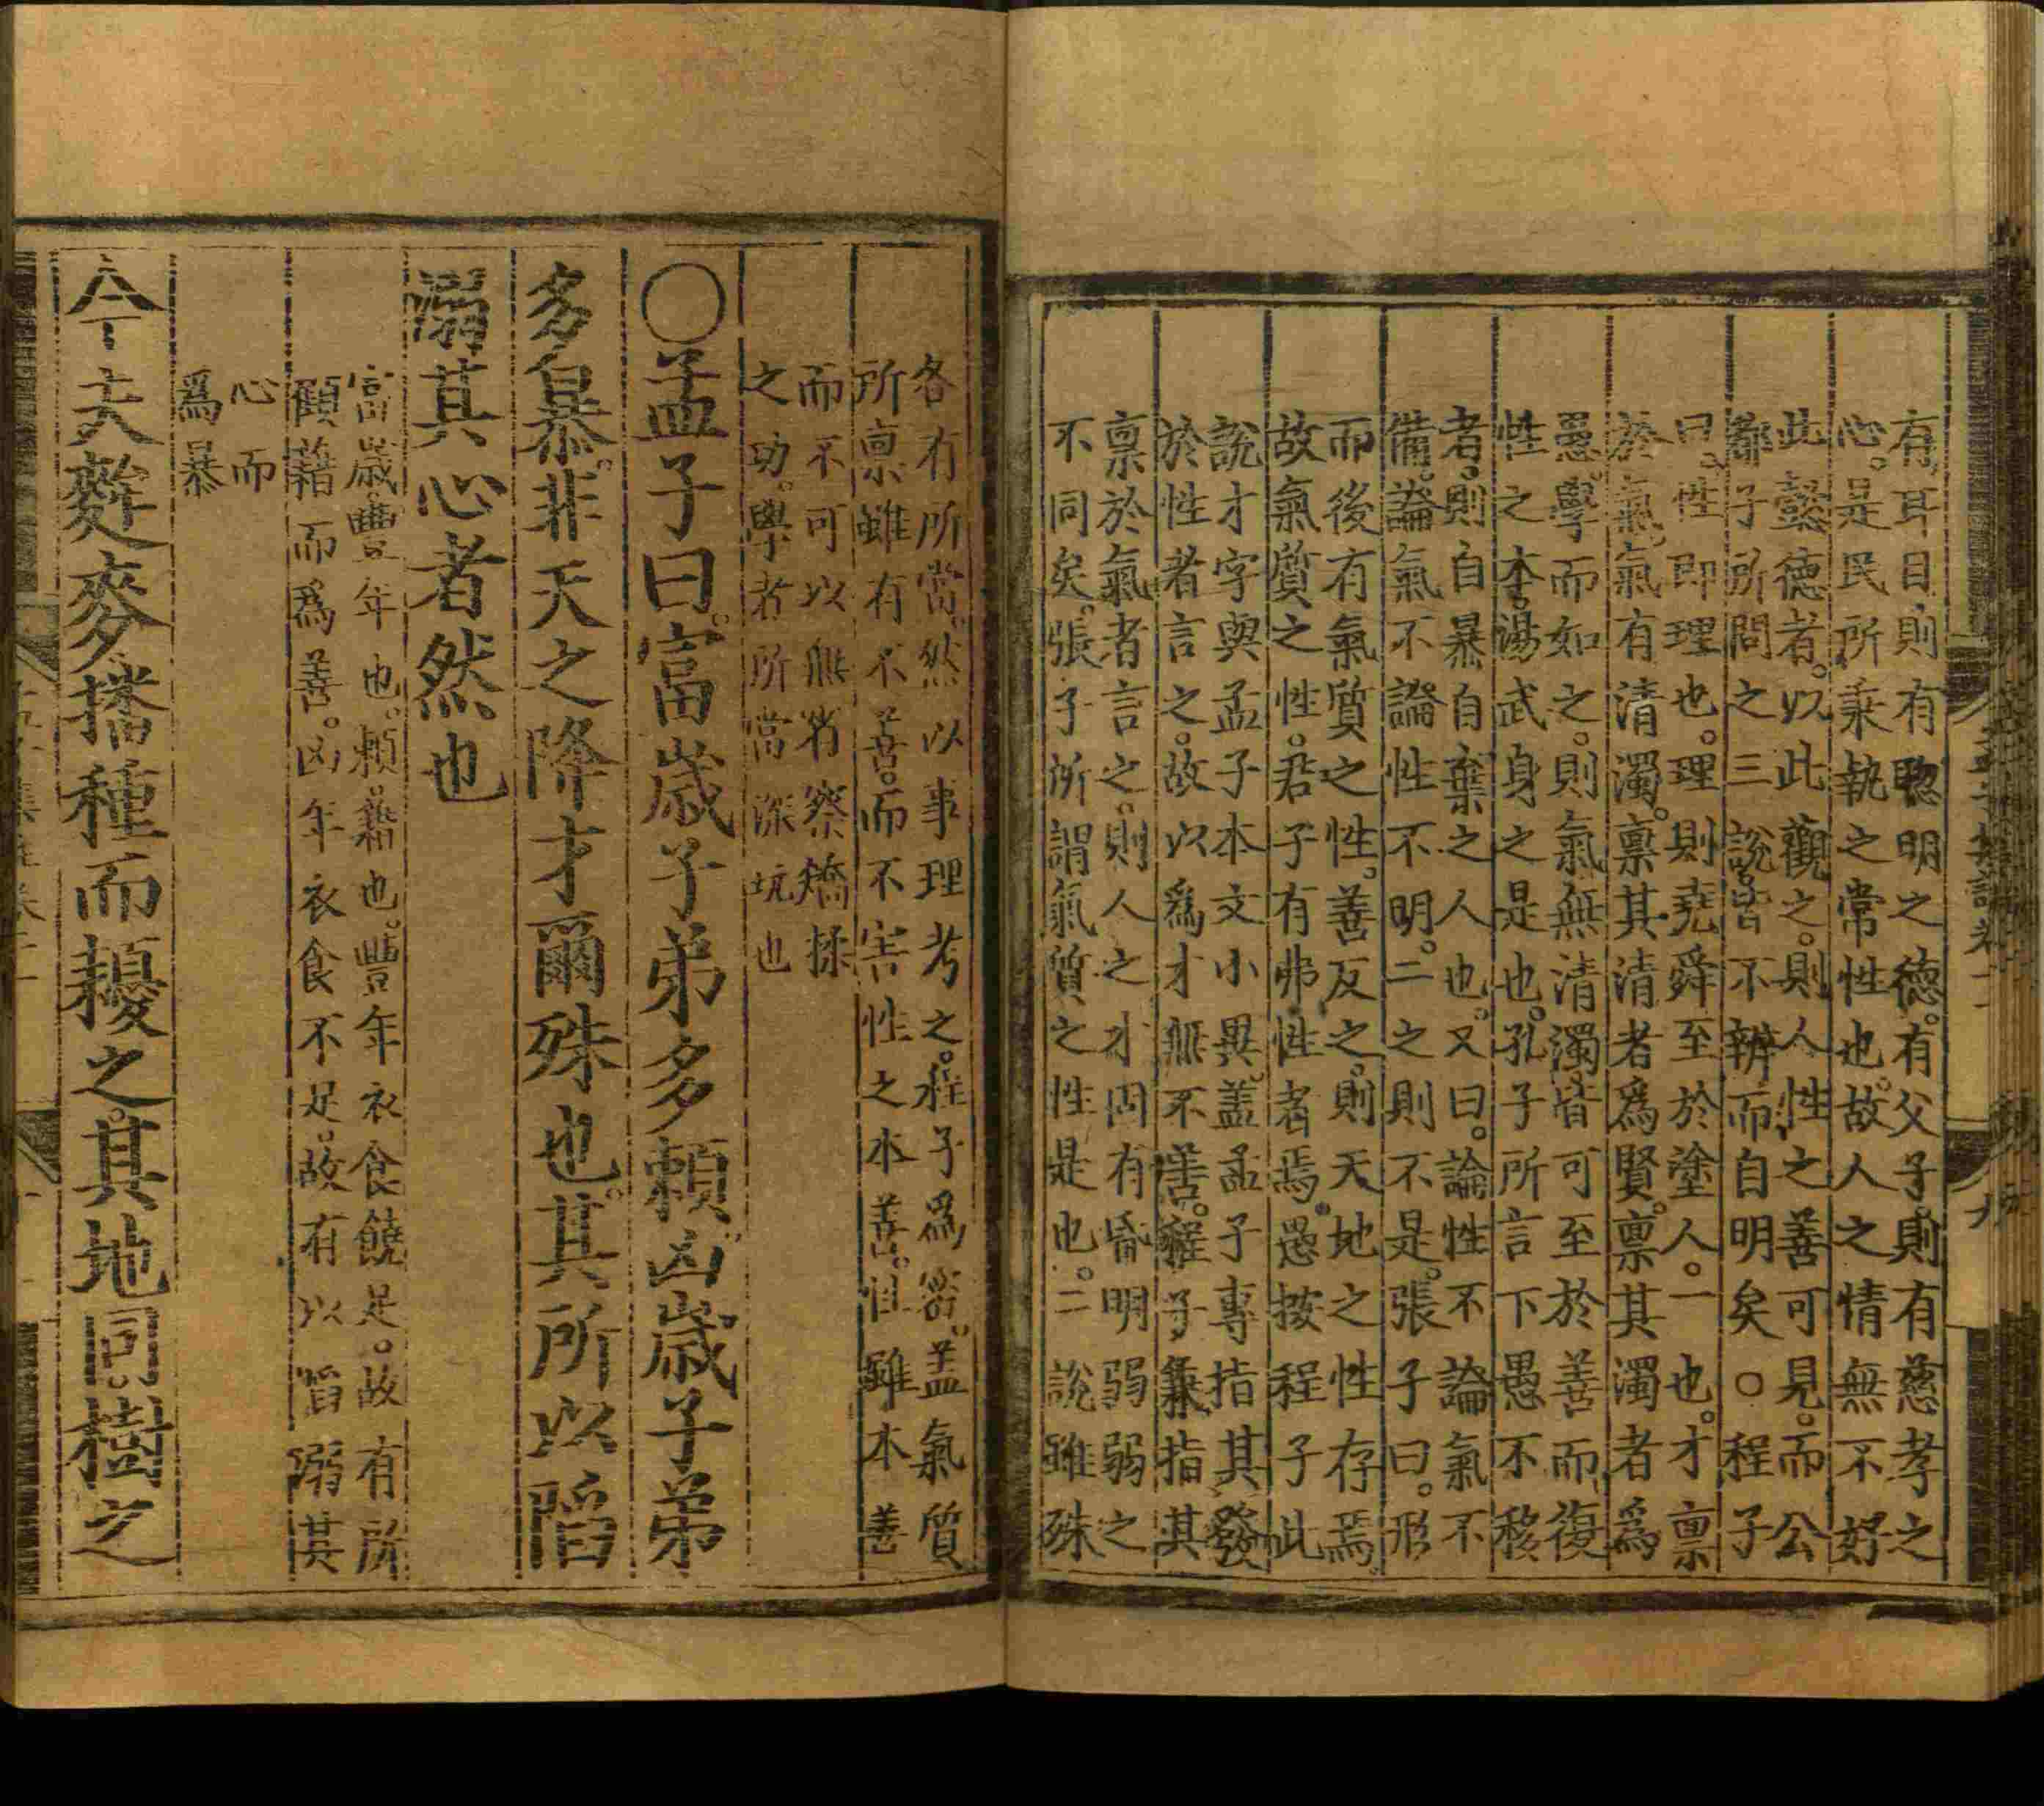 有耳目則有聰明之德。有父子則有慈孝之
心。是民所秉執之常性也。故人之情無不好
此懿德者。以此觀之。則人性之善可見。而公
都子所問之三說。皆不辨而自明矣。○程子
曰。性即理也。理則堯舜至於塗人。一也。才稟
於氣。氣有清濁。稟其清者爲賢。稟其濁者爲
愚。學而知之。則氣無清濁皆可至於善而復
性之本。湯武身之是也。孔子所言下愚不移
者。則自暴自棄之人也。又曰。論性不論氣不
備。論氣不論性不明。二之則不是。張子曰。形
而後有氣質之性。善反之。則天地之性存焉。
故氣質之性。君子有弗性者焉。愚按程子此
說才字與孟子本文小異。盖孟子專指其發
於性者言之。故以爲才無不善。程子兼指其
稟於氣者言之。則人之才固有昏明強弱之
不同矣。張子所謂氣質之性是也。二說雖殊
各有所當。然以事理考之。程子爲密。盖氣質
所稟雖有不善。而不害性之本善。性雖本善
而不可以無省察矯揉
之功。學者所當深玩也
○孟子曰。富歲子弟多賴。凶歲子弟
多暴。非天之降才爾殊也。其所以陷
溺其心者然也
富歲。豐年也。賴。藉也。豐年衣食饒足。故有所
顧藉而爲善。凶年衣食不足。故有以陷溺其
心而
爲暴
今夫麰麥播種而耰之。其地同。樹之